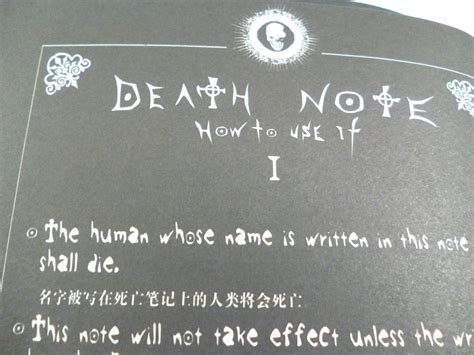 DEATH NOTE
How to use it
I
The human whose name is written in this note
shall die.
名字被写在死亡笔记上的人类将会死亡
This note will not take effect unless the